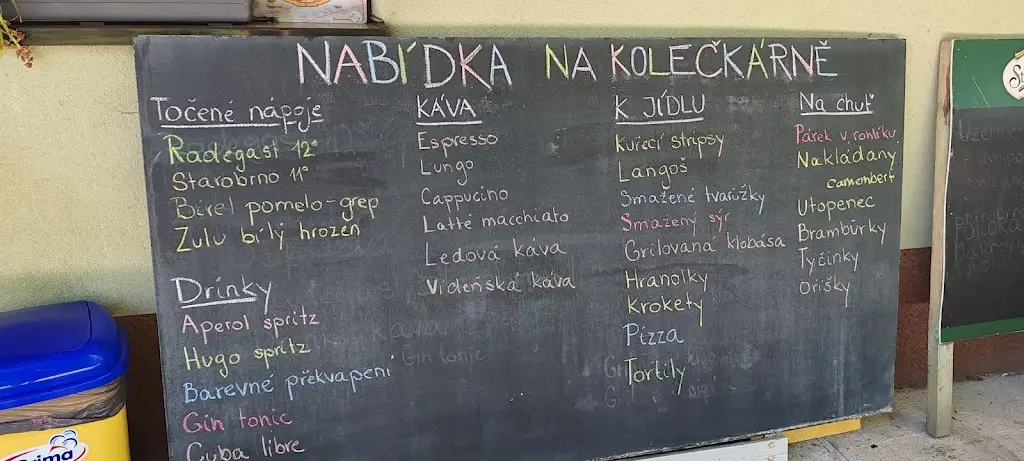 NABÍDKA NA KOLEČKÁRNĚ
Točené nápoje
Radegast 12°
Starobrno 11°
Birel pomelo-grep
Zulu bílý hrozen
Drinky
Aperol spritz
Hugo spritz
Barevné překvapení
Gin tonic
Cuba libre
KÁVA
Espresso
Lungo
Cappucino
Latté macchiato
Ledová káva
Vídeňská káva
Gin tonic
K JÍDLU
Kuřecí stripsy
Langoš
Smažené tvarůžky
Smažený sýr
Grilovaná klobása
Hranolky
Krokety
Pizza
Tortily
Na chuť
Párek v rohlíku
Nakládaný
camembert
Utopenec
Brambůrky
Tyčinky
Oříšky
Prima